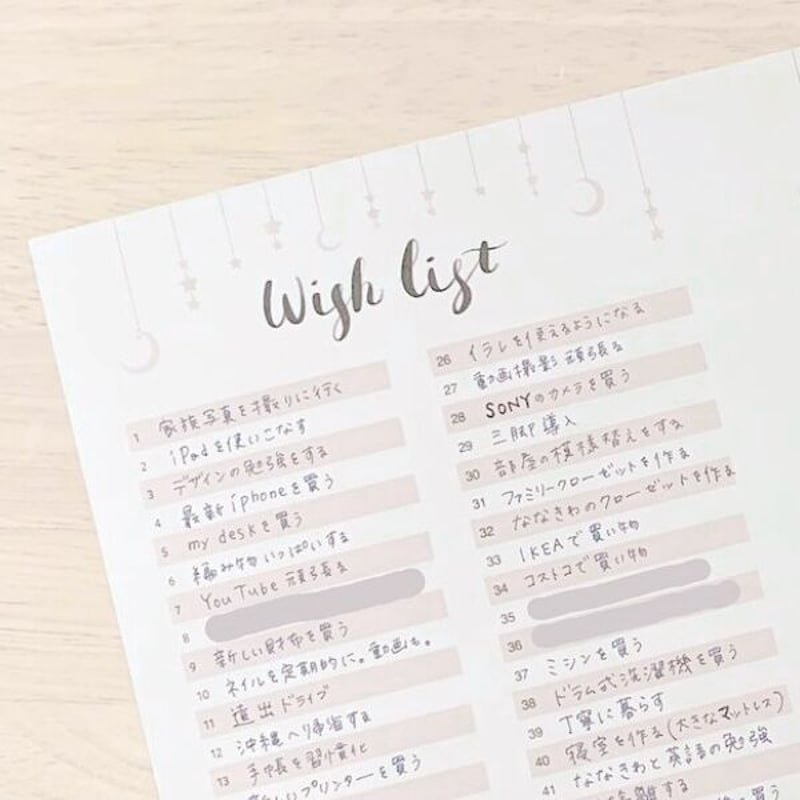 Wish list
1 家族写真を撮りに行く
2 iPadを使いこなす
3 デザインの勉強をする
4 最新iphoneを買う
5 my deskを買う
6 編み物いっぱいする
7 YouTube頑張る
8
9 新しい財布を買う
10 ネイルを定期的に。動画も。
11 遠出ドライブ
12 沖縄へ帰省する
13 手帳を習慣化
新しいプリンターを買う
26 イラレを使えるようになる
27 動画撮影頑張る
28 SONYのカメラを買う
29 三脚導入
30 部屋の模様替えをする
31 ファミリークローゼットを作る
32 ななきわのクローゼットを作る
33 IKEAで買い物
34 コストコで買い物
35
36
37 ミシンを買う
38 ドラム式洗濯機を買う
39 丁寧に暮らす
40 寝室を作る(大きなマットレス)
41 ななきわと英語の勉強